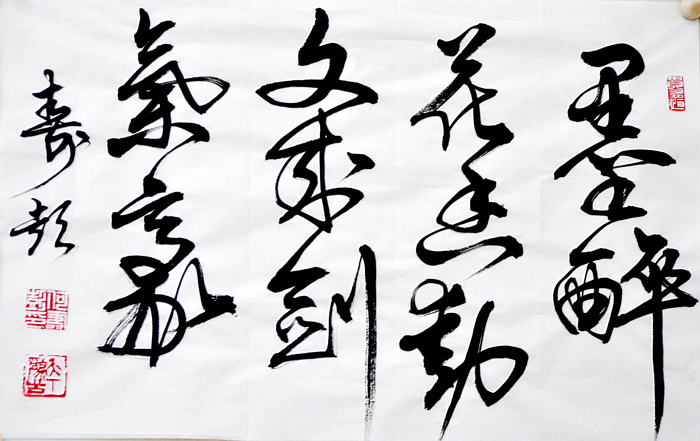 墨醉
花香動
文成劍
氣豪
壽彭